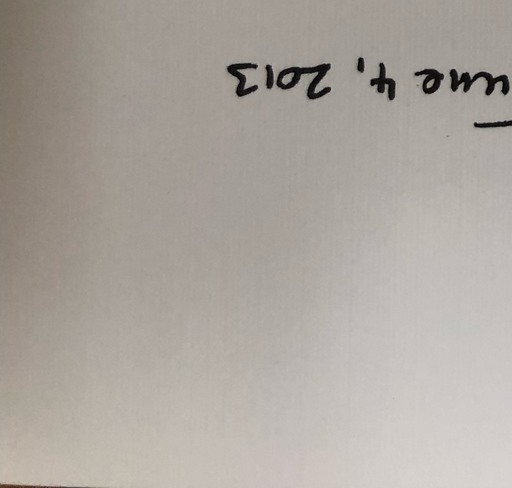 June 4, 2013